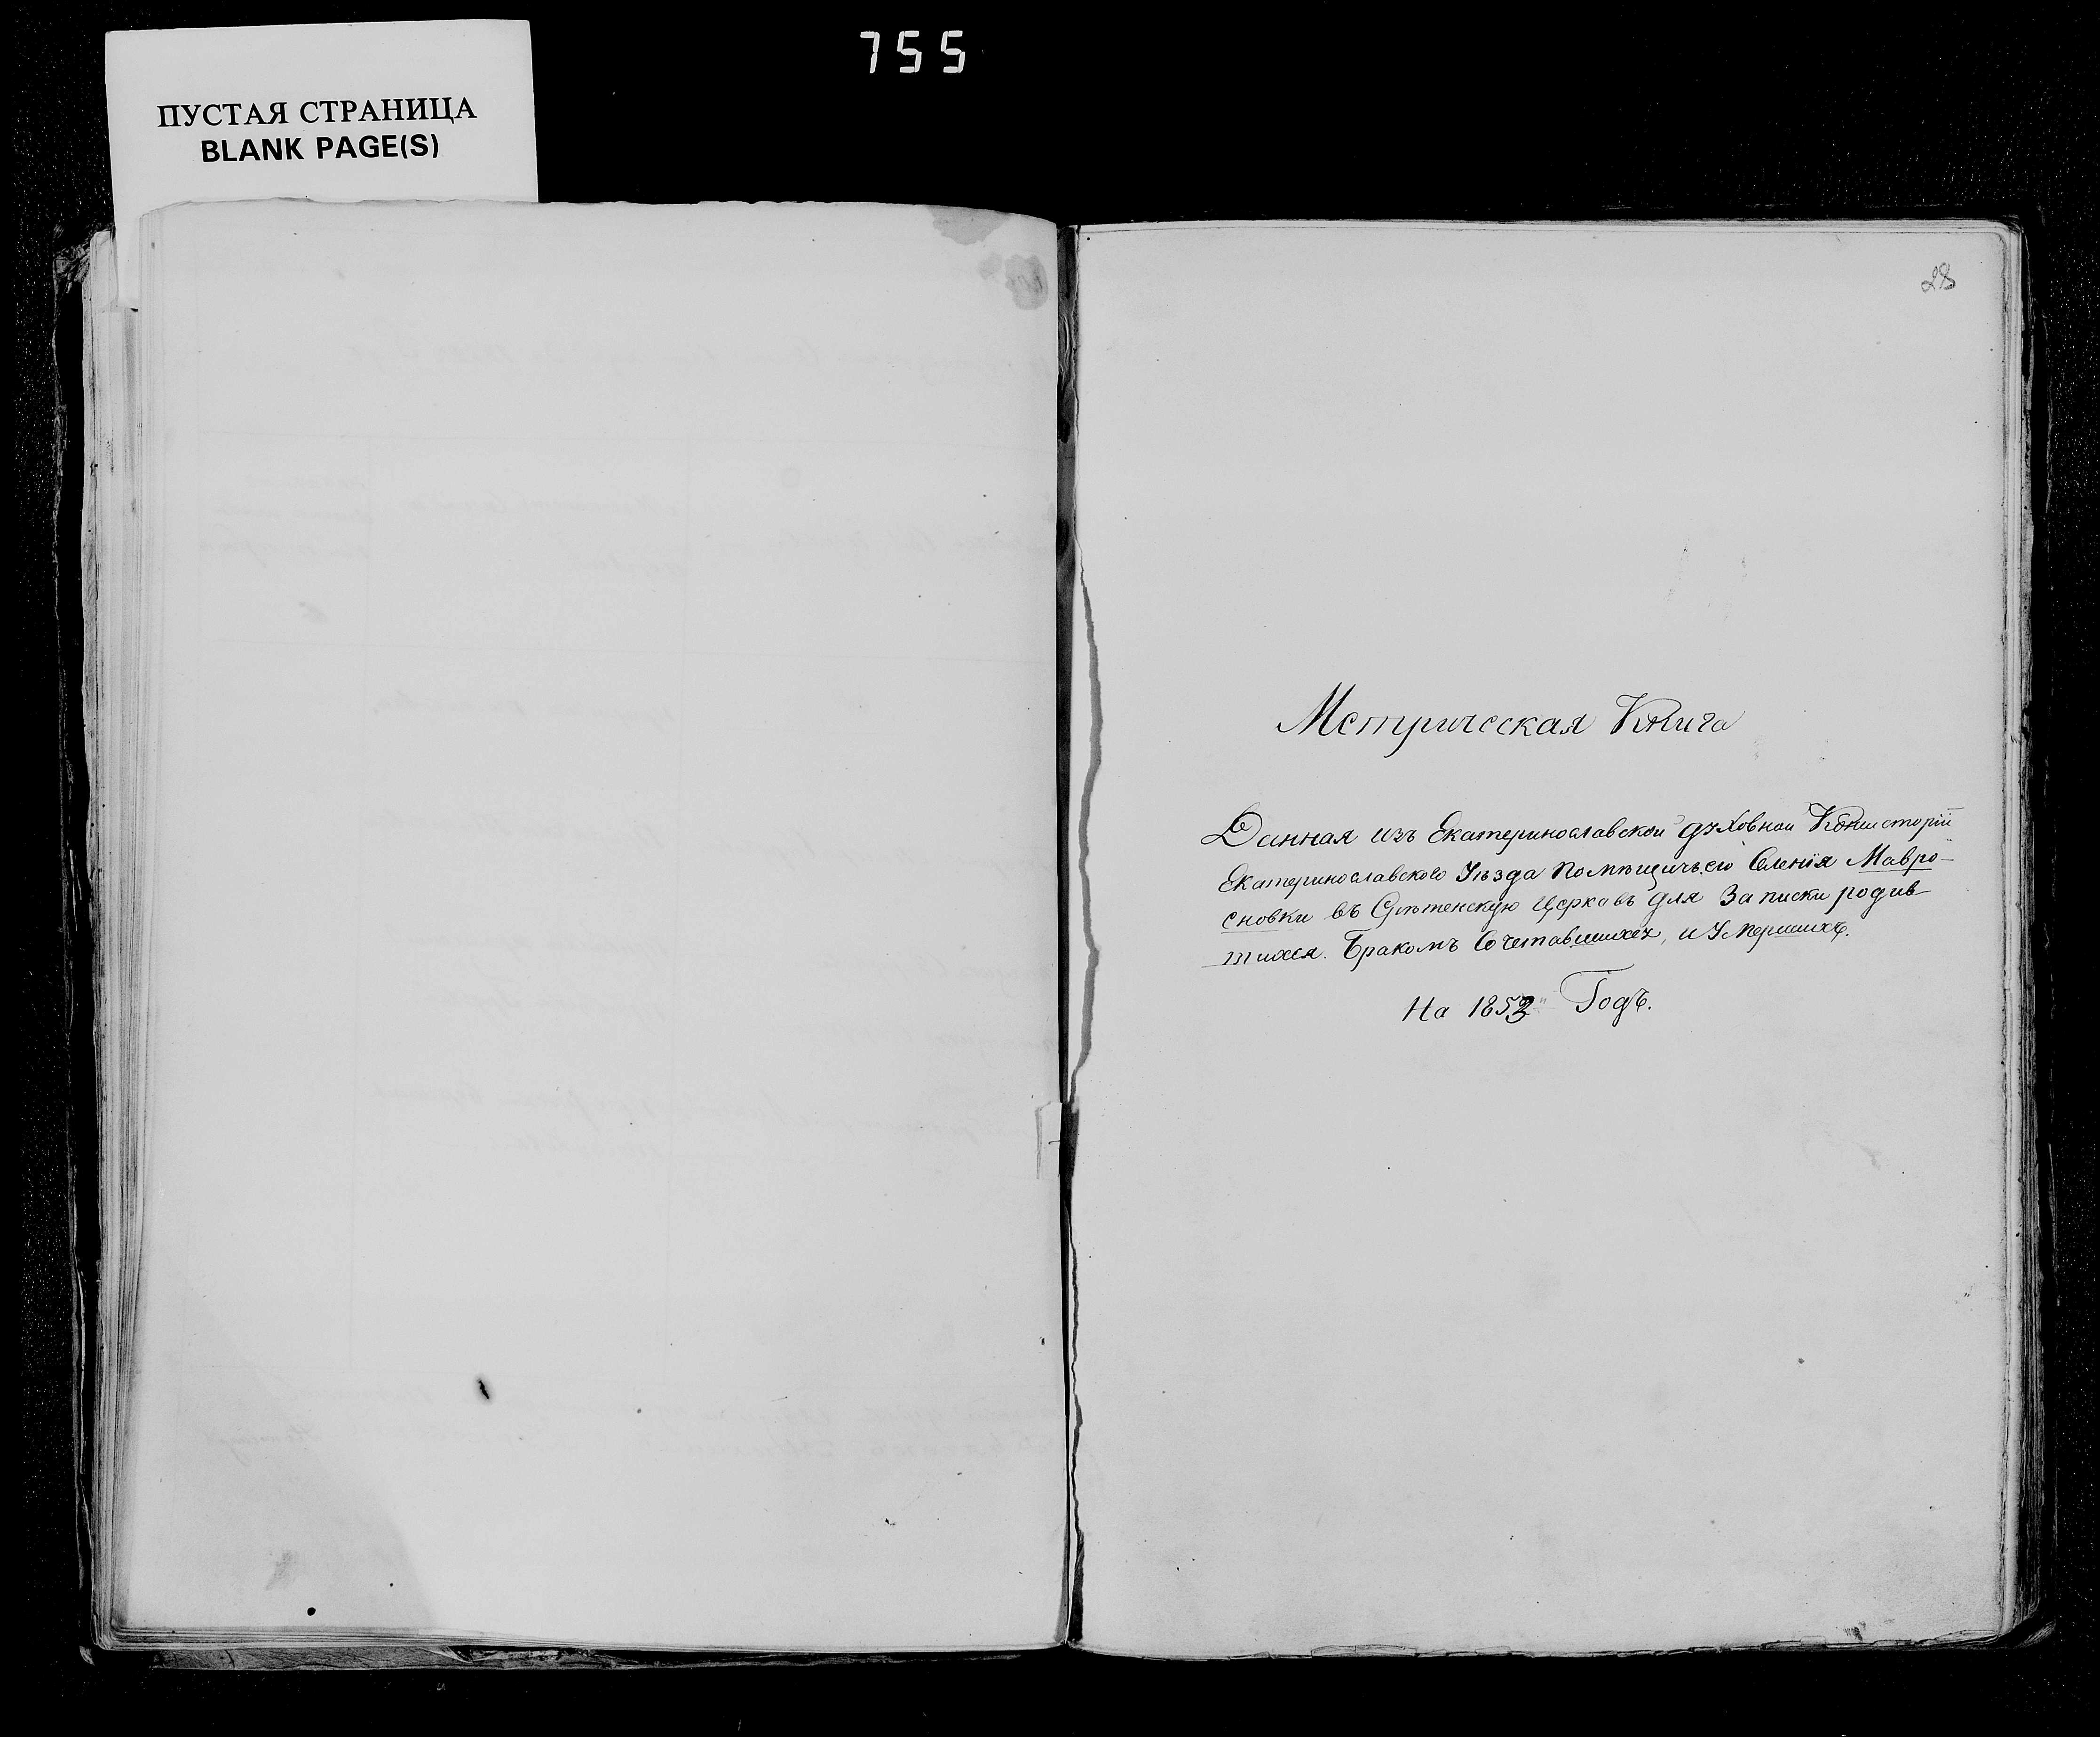 755
ПУСТАЯ СТРАНИЦА
BLANK PAGE(S)
28
Метрическая Книга
Данная изъ Екатеринославской Духовной Консисторіи
Екатеринославского Уѣзда Помѣщичьего Селенія Мавро-
еновки въ Срѣтенскую Церковь для Записки родив-
шихся. Бракомъ Сочетавшихся, и Умершихъ.
На 1853 Годъ.